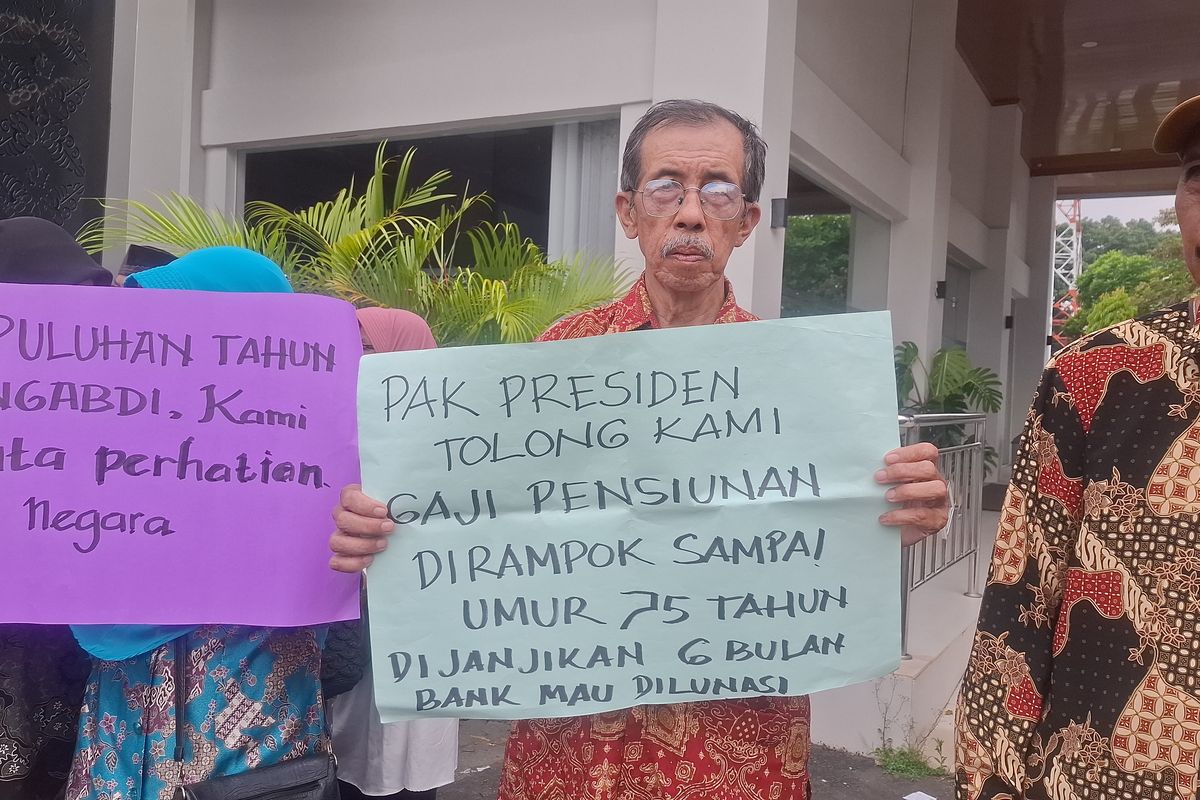 PULUHAN TAHUN
NGABDI, Kami
ta perhatian
Negara
PAK PRESIDEN
TOLONG KAMI
GAJI PENSIUNAN
DIRAMPOK SAMPAI
UMUR 75 TAHUN
DIJANJIKAN 6 BULAN
BANK MAU DILUNASI